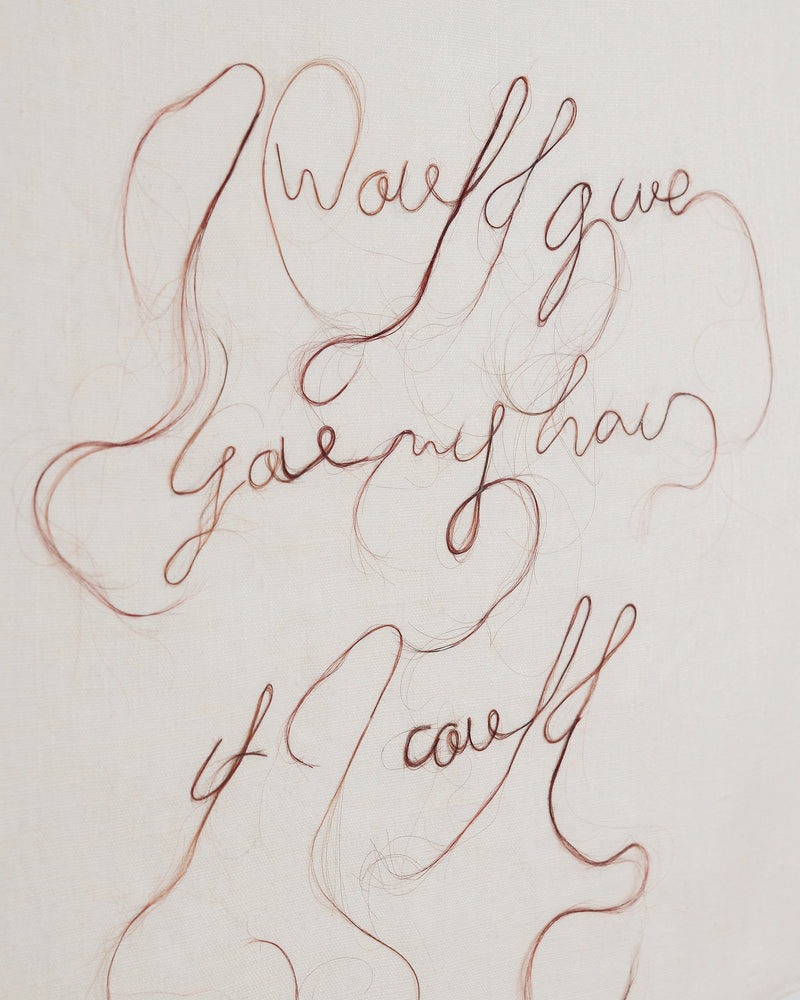 I Would give
my hair
if I could